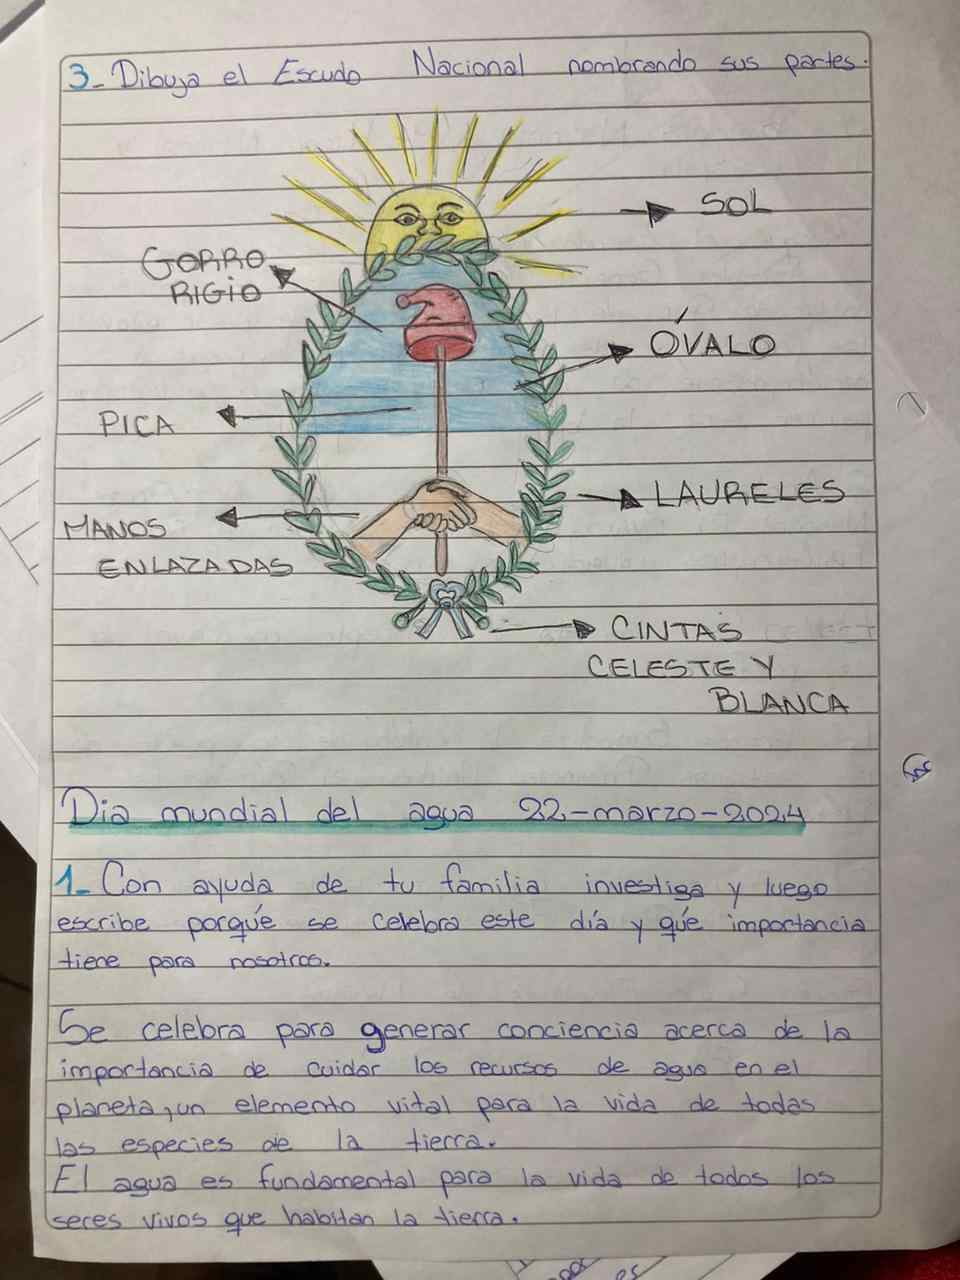 3- Dibuja el Escudo Nacional nombrando sus partes.
SOL
GORRO
RIGIO
ÓVALO
PICA
LAURELES
MANOS
ENLAZADAS
CINTAS
CELESTE Y
BLANCA
Dia mundial del agua 22-marzo-2024
1- Con ayuda de tu familia investiga y luego
escribe porqué se celebra este día y qué importancia
tiene para nosotros.
Se celebra para generar conciencia acerca de la
importancia de cuidar los recursos de agua en el
planeta, un elemento vital para la vida de todas
las especies de la tierra.
El agua es fundamental para la vida de todos los
seres vivos que habitan la tierra.